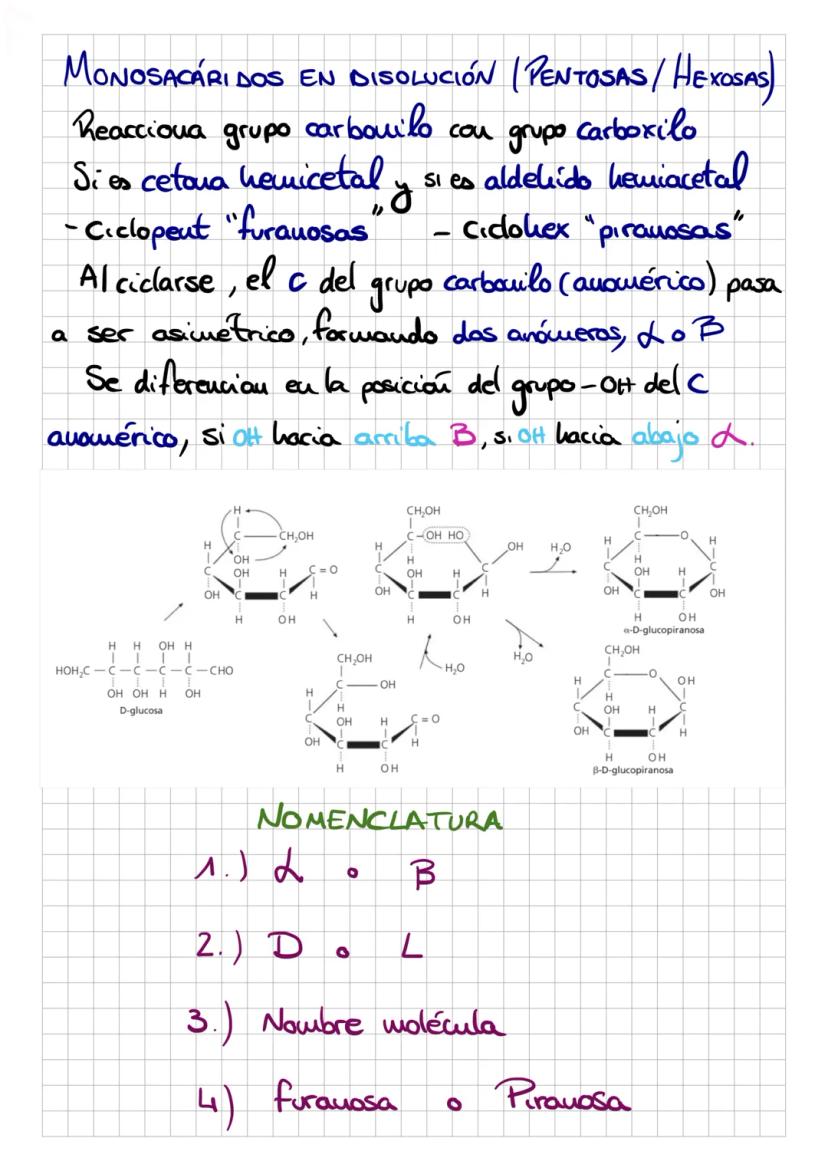 MONOSACÁRIDOS EN DISOLUCIÓN (PENTOSAS/HEXOSAS)
Reacciona grupo carbonilo con grupo carboxilo
Si es cetona hemicetal y si es aldehído hemiacetal
- Ciclopent "furanosas" - Ciclohex "piranosas"
Al ciclarse, el C del grupo carbonilo (anomérico) pasa
a ser asimétrico, formando dos anómeros, α o B
Se diferencian en la posición del grupo -OH del C
anomérico, si OH hacia arriba B, si OH hacia abajo α.
H
C CH₂OH
H OH
C OH H C=O
OH C C H
H OH
CH₂OH
C-OH HO
H H OH
C OH H C
OH C C H
H OH
H₂O
CH₂OH
C O
H H H
C OH H C
OH C C OH
H OH
α-D-glucopiranosa
H H OH H
HOH₂C-C-C-C-C-CHO
OH OH H OH
D-glucosa
CH₂OH
C OH
H H
C OH H C=O
OH C C H
H OH
H₂O
H₂O
CH₂OH
C O
H H OH
C OH H C
OH C C H
H OH
β-D-glucopiranosa
NOMENCLATURA
1.) α o B
2.) D o L
3.) Nombre molécula
4) furanosa o Piranosa